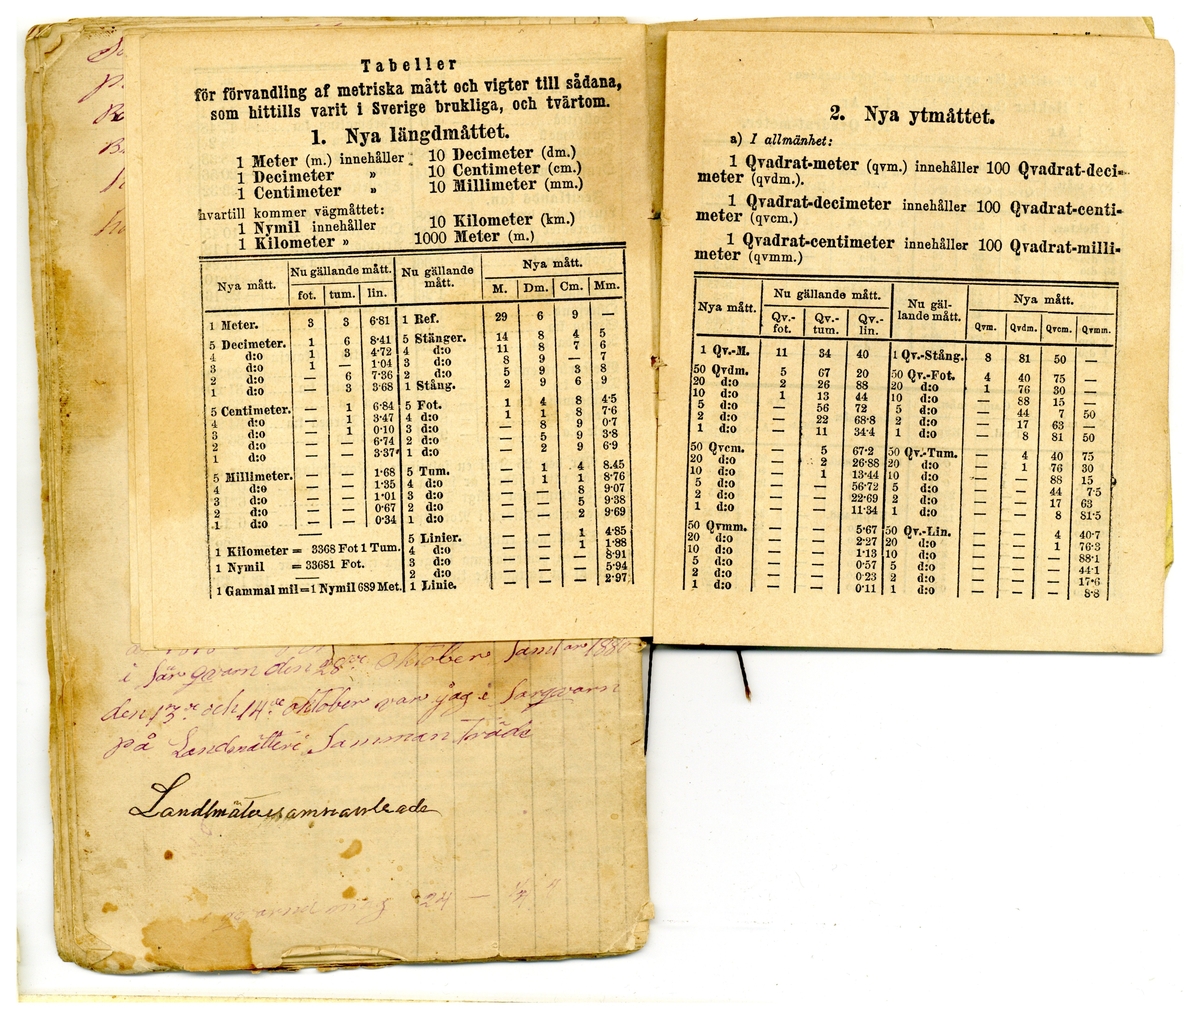 Tabeller
för förvandling af metriska mått och vigter till sådana,
som hittills varit i Sverige brukliga, och tvärtom.
1. Nya längdmåttet.
1 Meter (m.) innehåller 10 Decimeter (dm.)
1 Decimeter » 10 Centimeter (cm.)
1 Centimeter » 10 Millimeter (mm.)
hvartill kommer vägmåttet:
1 Nymil innehåller 10 Kilometer (km.)
1 Kilometer » 1000 Meter (m.)
Nya mått. Nu gällande mått. Nu gällande mått. Nya mått.
fot. tum. lin. M. Dm. Cm. Mm.
1 Meter. 3 3 6·81 1 Ref. 29 6 9 —
5 Decimeter. 1 6 8·41 5 Stänger. 14 8 4 5
4 d:o 1 3 4·72 4 d:o 11 8 7 6
3 d:o 1 — 1·04 3 d:o 8 9 — 7
2 d:o — 6 7·36 2 d:o 5 9 3 8
1 d:o — 3 3·68 1 Stång. 2 9 6 9
5 Centimeter. — 1 6·84 5 Fot. 1 4 8 4·5
4 d:o — 1 3·47 4 d:o 1 1 8 7·6
3 d:o — 1 0·10 3 d:o — 8 9 0·7
2 d:o — — 6·74 2 d:o — 5 9 3·8
1 d:o — — 3·37 1 d:o — 2 9 6·9
5 Millimeter. — — 1·68 5 Tum. — 1 4 8·45
4 d:o — — 1·35 4 d:o — 1 1 8·76
3 d:o — — 1·01 3 d:o — — 8 9·07
2 d:o — — 0·67 2 d:o — — 5 9·38
1 d:o — — 0·34 1 d:o — — 2 9·69
5 Linier. — — 1 4·85
1 Kilometer = 3368 Fot 1 Tum. 4 d:o — — 1 1·88
1 Nymil = 33681 Fot. 3 d:o — — — 8·91
2 d:o — — — 5·94
1 Gammal mil = 1 Nymil 689 Met. 1 Linie. — — — 2·97
2. Nya ytmåttet.
a) I allmänhet:
1 Qvadrat-meter (qvm.) innehåller 100 Qvadrat-deci-
meter (qvdm.).
1 Qvadrat-decimeter innehåller 100 Qvadrat-centi-
meter (qvcm.)
1 Qvadrat-centimeter innehåller 100 Qvadrat-milli-
meter (qvmm.)
Nya mått. Nu gällande mått. Nu gäl-lande mått. Nya mått.
Qv.-fot. Qv.-tum. Qv.-lin. Qvm. Qvdm. Qvcm. Qvmm.
1 Qv.-M. 11 34 40 1 Qv.-Stång. 8 81 50 —
50 Qvdm. 5 67 20 50 Qv.-Fot. 4 40 75 —
20 d:o 2 26 88 20 d:o 1 76 30 —
10 d:o 1 13 44 10 d:o — 88 15 —
5 d:o — 56 72 5 d:o — 44 7 50
2 d:o — 22 68·8 2 d:o — 17 63 —
1 d:o — 11 34·4 1 d:o — 8 81 50
50 Qvcm. — 5 67·2 50 Qv.-Tum. — 4 40 75
20 d:o — 2 26·88 20 d:o — 1 76 30
10 d:o — 1 13·44 10 d:o — — 88 15
5 d:o — — 56·72 5 d:o — — 44 7·5
2 d:o — — 22·69 2 d:o — — 17 63
1 d:o — — 11·34 1 d:o — — 8 81·5
50 Qvmm. — — 5·67 50 Qv.-Lin. — — 4 40·7
20 d:o — — 2·27 20 d:o — — 1 76·3
10 d:o — — 1·13 10 d:o — — — 88·1
5 d:o — — 0·57 5 d:o — — — 44·1
2 d:o — — 0·23 2 d:o — — — 17·6
1 d:o — — 0·11 1 d:o — — — 8·8
i Särqvarn den 28 oktober Samt ar 1880
den 13 och 14 oktober var jag i Sarqvarn
på Landmätteri Samman träde
Landtmäterisammanträde
24 —